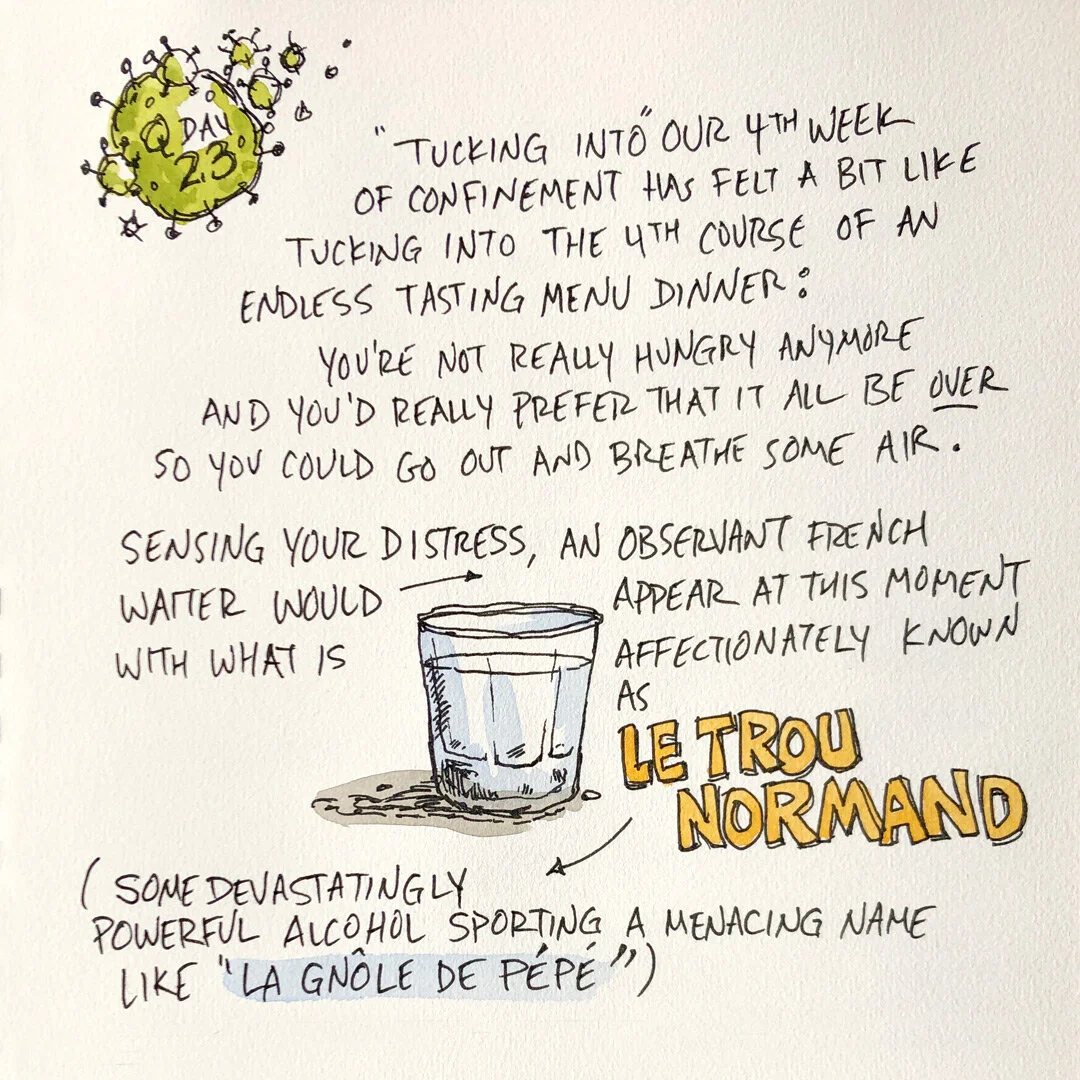 Q DAY
23
"TUCKING INTO" OUR 4TH WEEK
OF CONFINEMENT HAS FELT A BIT LIKE
TUCKING INTO THE 4TH COURSE OF AN
ENDLESS TASTING MENU DINNER:
YOU'RE NOT REALLY HUNGRY ANYMORE
AND YOU'D REALLY PREFER THAT IT ALL BE OVER
SO YOU COULD GO OUT AND BREATHE SOME AIR.
SENSING YOUR DISTRESS, AN OBSERVANT FRENCH
WAITER WOULD APPEAR AT THIS MOMENT
WITH WHAT IS AFFECTIONATELY KNOWN
AS
LE TROU
NORMAND
(SOME DEVASTATINGLY
POWERFUL ALCOHOL SPORTING A MENACING NAME
LIKE "LA GNÔLE DE PÉPÉ")